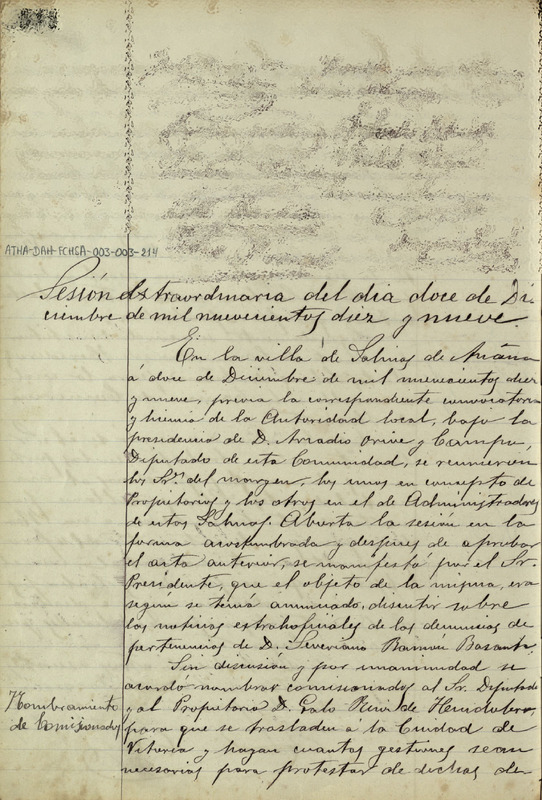 ATHA-DAH-FCHSA-003-003-214
Sesión extraordinaria del dia doce de Di-
ciembre de mil nuevecientos diez y nueve.
En la villa de Salinas de Añana
á doce de Diciembre de mil nuevecientos diez
y nueve, previa la correspondiente convocatoria
y licencia de la Autoridad local, bajo la
presidencia de D. Arcadio Orive y Campo,
Diputado de esta Comunidad, se reunieron
los Srs. del margen, los unos en concepto de
Propietarios y los otros en el de Administradores
de estas Salinas. Abierta la sesión en la
forma acostumbrada y despues de aprobar
el acta anterior, se manifestó por el Sr.
Presidente, que el objeto de la misma, era
según se tenia anunciado, discutir sobre
las noticias extraoficiales de las denuncias de
pertenencias de D. Severiano Ramon
Sin discusion y por unanimidad se
acordó nombrar comisionados al Sr. Diputado
y al Propietario D. Ruiz de
para que se trasladen á la Ciudad de
Vitoria y hagan cuantas gestiones sean
necesarias para protestar de dichas de-
Nombramiento
de Comisionados